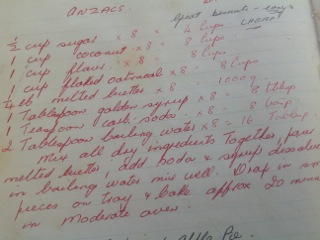 ANZACS.
Great biscuits - easy &
CHEAP!
½ cup sugar x 8 = 4 Cups
1 cup coconut x 8 = 8 Cups
1 cup flour x 8 = 8 Cups
1 cup flaked oatmeal x 8 = 8 Cups
¼ lb melted butter x 8 1000g
1 Tablespoon golden syrup x 8 = 8 tblsp
1 Teaspoon carb. soda. x 8 = 8
2 Tablespoon boiling water x 8 = 16
Mix all dry ingredients together, pour
melted butter, add soda & syrup dissolved
in boiling water mix well. Drop in
pieces on tray & bake approx 20 minu
in moderate oven.
Apple Pie.